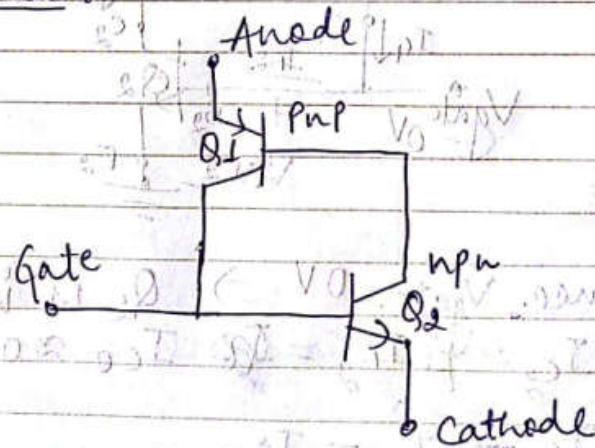 Anode
pnp
Q1
Gate
npn
Q2
Cathode